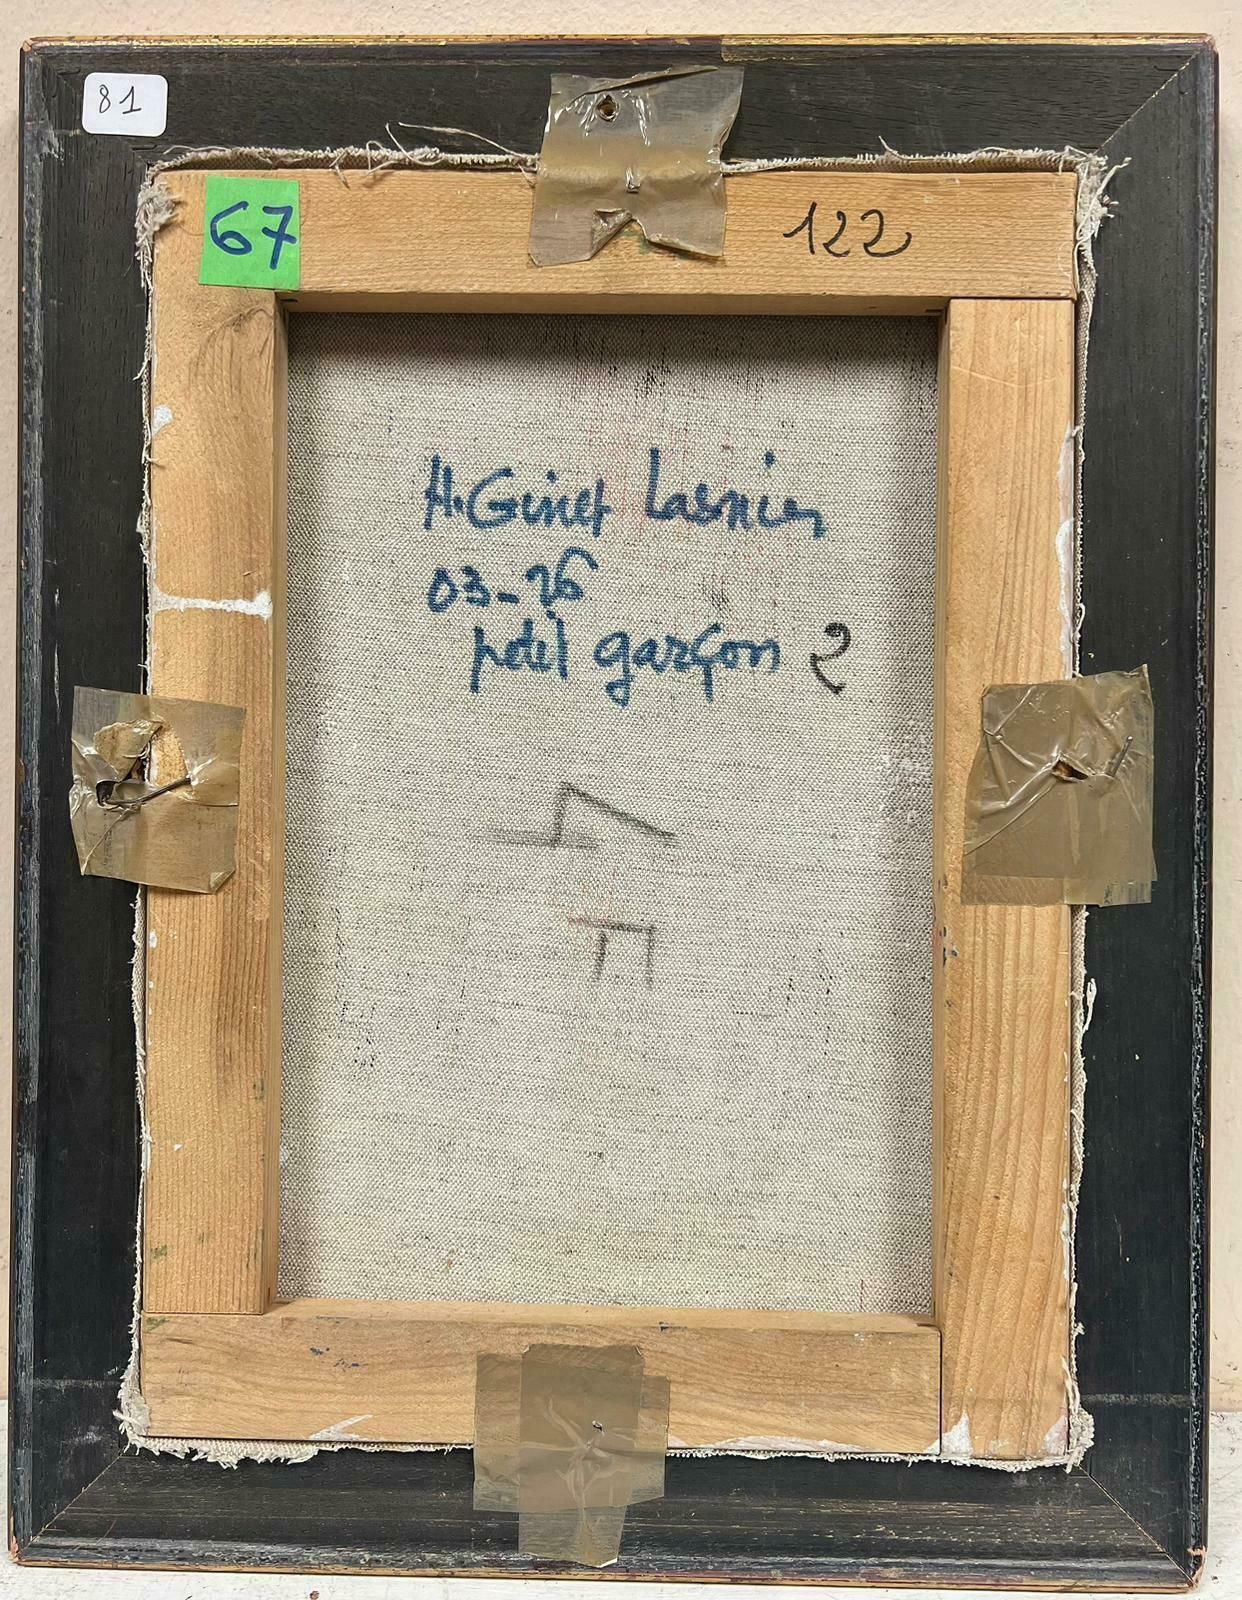 81
67
122
H. Ginet Lasnier
03-76
petit garçon 2